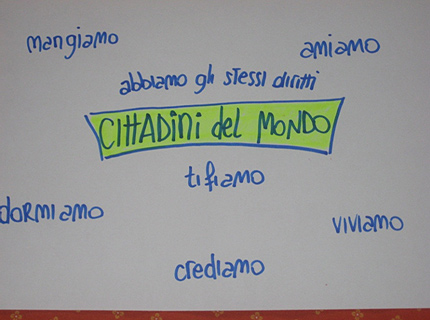 mangiamo
amiamo
abbiamo gli stessi diritti
CITTADINI del MONDO
tifiamo
dormiamo
viviamo
crediamo